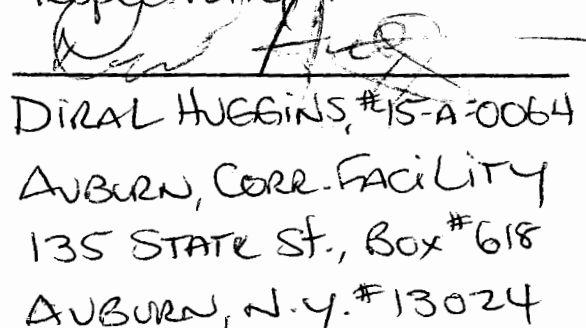 DIRAL HUGGINS, #15-A-0064
AUBURN, CORR. FACILITY
135 STATE St., BOX #618
AUBURN, N.Y. #13024